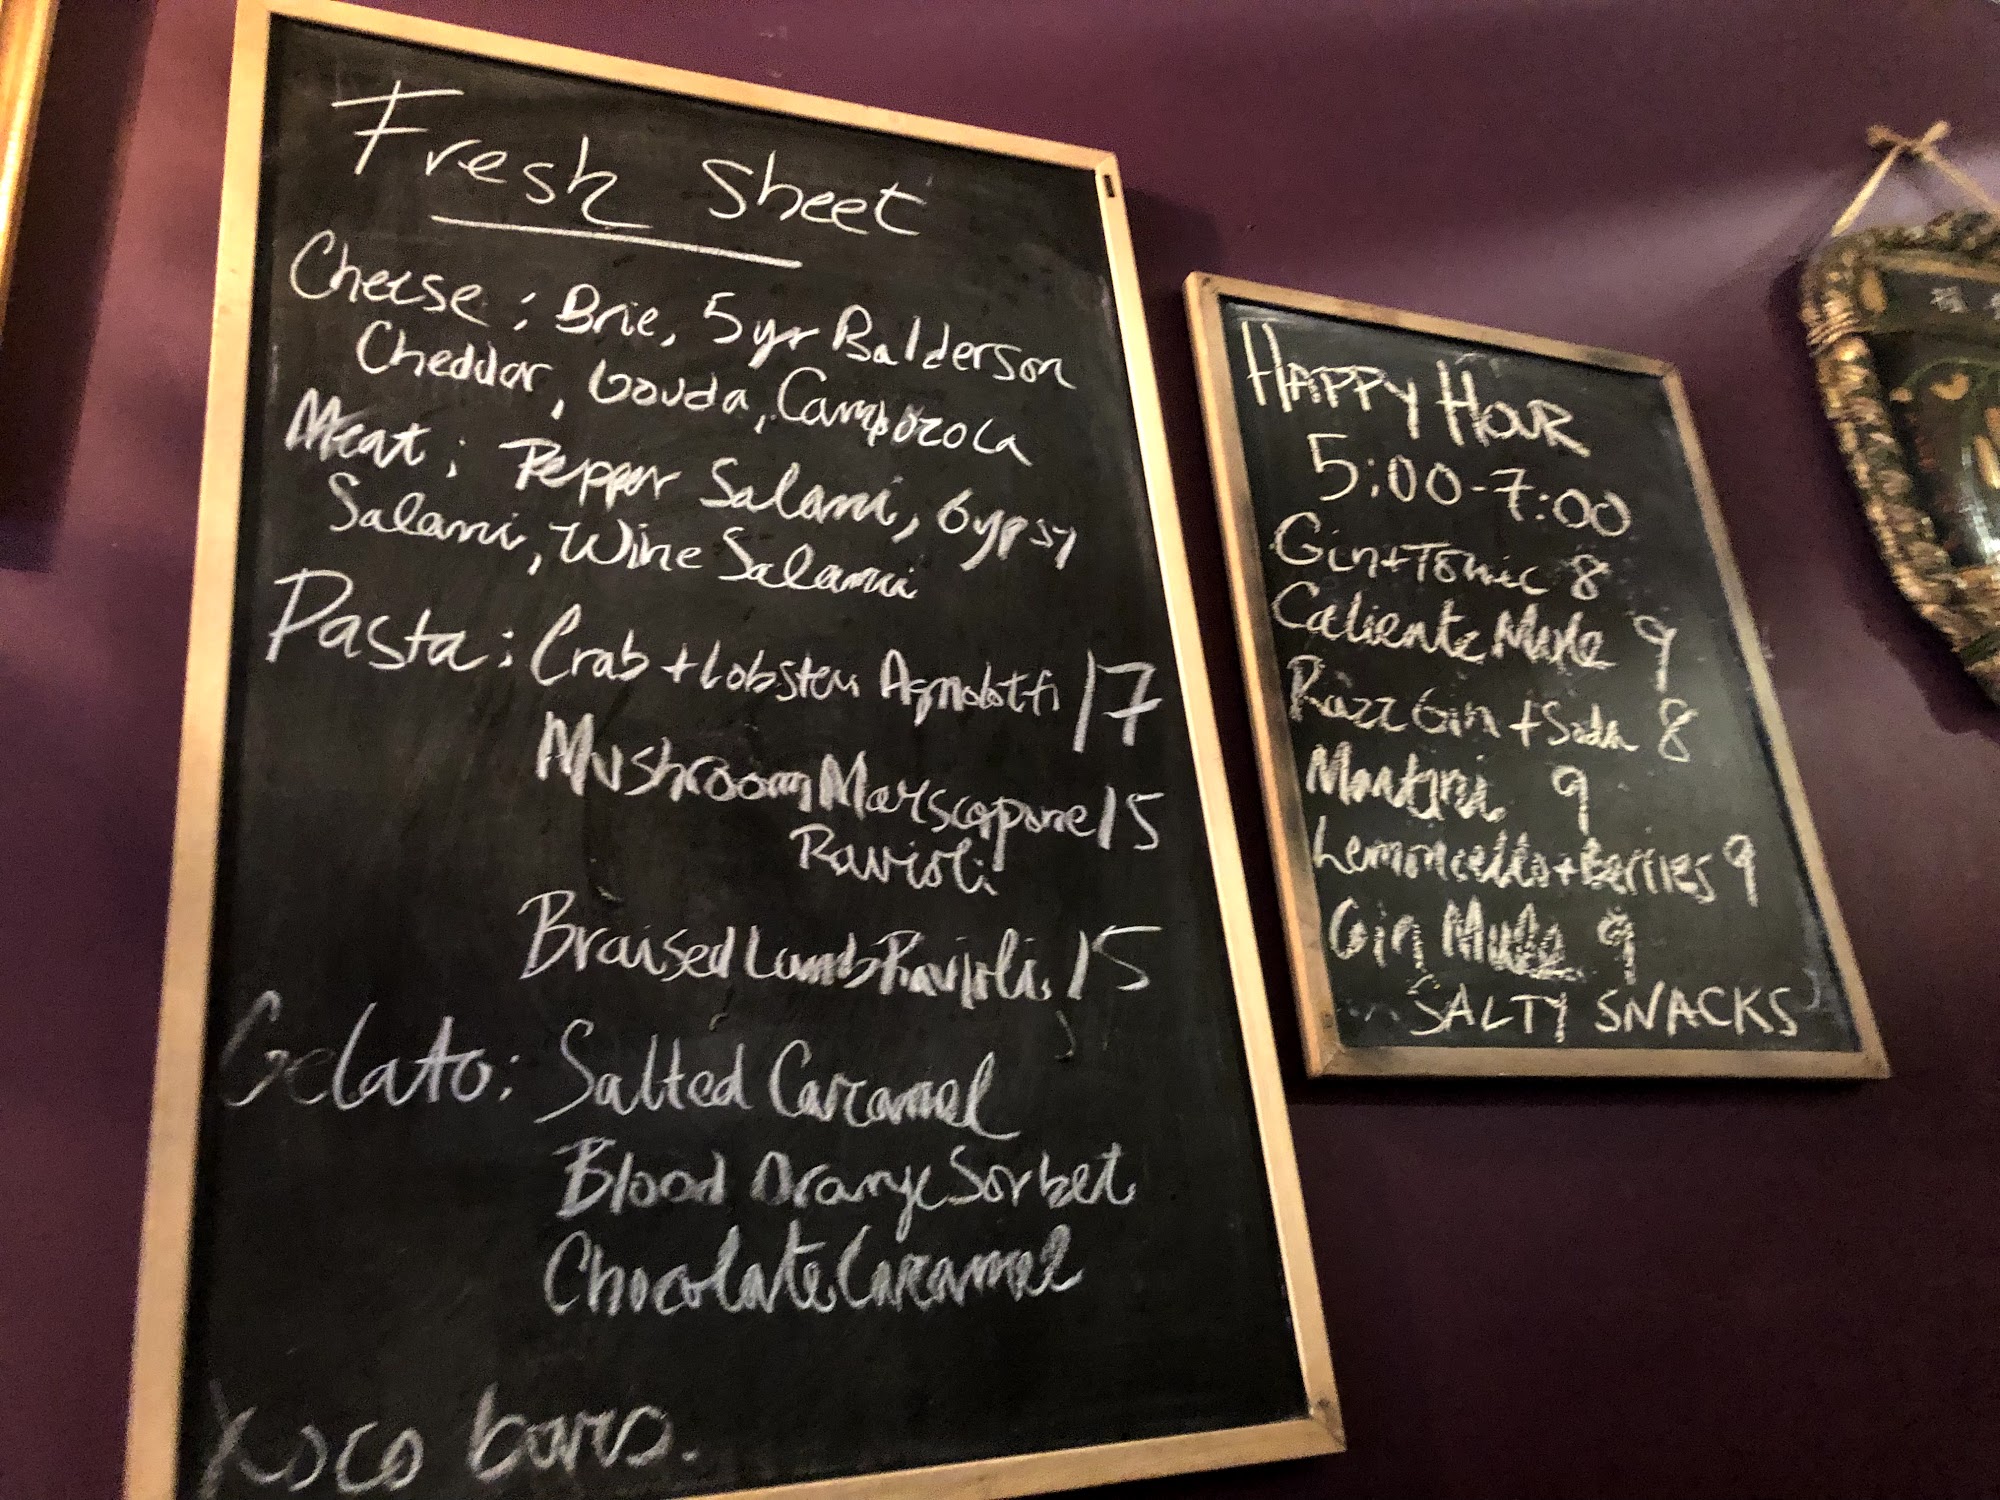 Fresh Sheet
Cheese: Brie, 5yr Balderson
Cheddar, Gouda, Camborzola
Meat: Pepper Salami, Gypsy
Salami, Wine Salami
Pasta: Crab + Lobster Agnolotti 17
Mushroom Marscapone 15
Ravioli
Braised Lamb Ravioli 15
Gelato: Salted Caramel
Blood Orange Sorbet
Chocolate Caramel
Xoco bars.
HAPPY HOUR
5:00-7:00
Gin+Tonic 8
Caliente Mule 9
Razz Gin + Soda 8
Martini 9
Lemoncello+Berries 9
Gin Mule 9
SALTY SNACKS
福